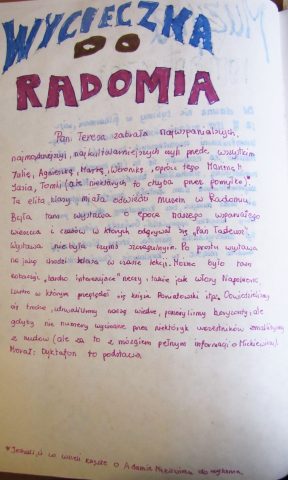 WYCIECZKA
DO
RADOMIA
Pani Teresa zabrała najwspanialszych,
najmądrzejszych, najkulturalniejszych czyli przede wszystkim
Julię, Agnieszkę, Martę, Weronikę, oprócz tego
Jasia, Tomka (ale niektórych to chyba przez pomyłkę).
Ta elita klasy miała odwiedzić Muzeum w Radomiu.
Była tam wystawa o epoce naszego wspaniałego
wieszcza i czasów w których odgrywał się „Pan Tadeusz".
Wystawa nie była czymś szczególnym. Po prostu wystawa
na jaką chodzi klasa w czasie lekcji. Mimo było tam
„bardzo interesujące" rzeczy, takie jak włosy Napoleona,
lustro w którym przeglądał się książe Poniatowski itp. Dowiedzieliśmy
się trochę, utrwaliliśmy naszą wiedzę, ale
gdyby nie numery wycinane przez niektórych uczestników
z nudów (ale za to z mózgiem pełnym informacji o Mickiewiczu).
Morał: Dyktafon to podstawa
* o Adamie Mickiewiczu do